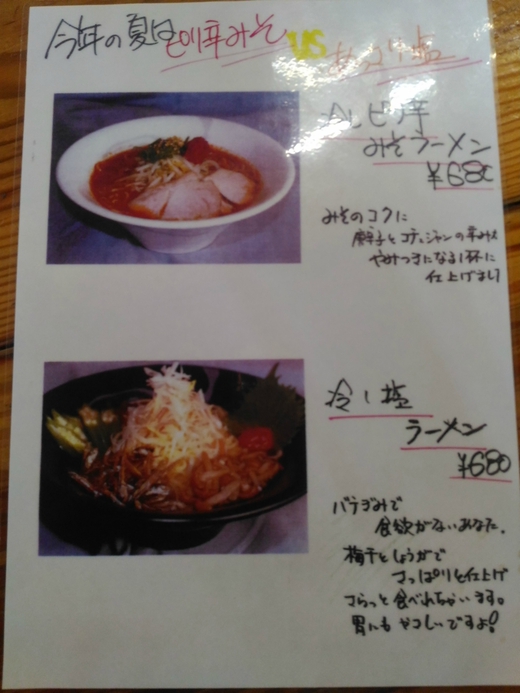 今年の夏は ピリ辛みそ VS あっさり塩
冷しピリ辛
みそラーメン
¥680
みそのコクに
唐辛子とコチュジャンの辛みん
やみつきになる1杯に
仕上げまし
冷し塩
ラーメン
¥680
バテぎみで
食欲がないあなた。
梅干としょうがで
さっぱりと仕上げ
さらっと食べれちゃいます。
胃にもやさしいですよ!